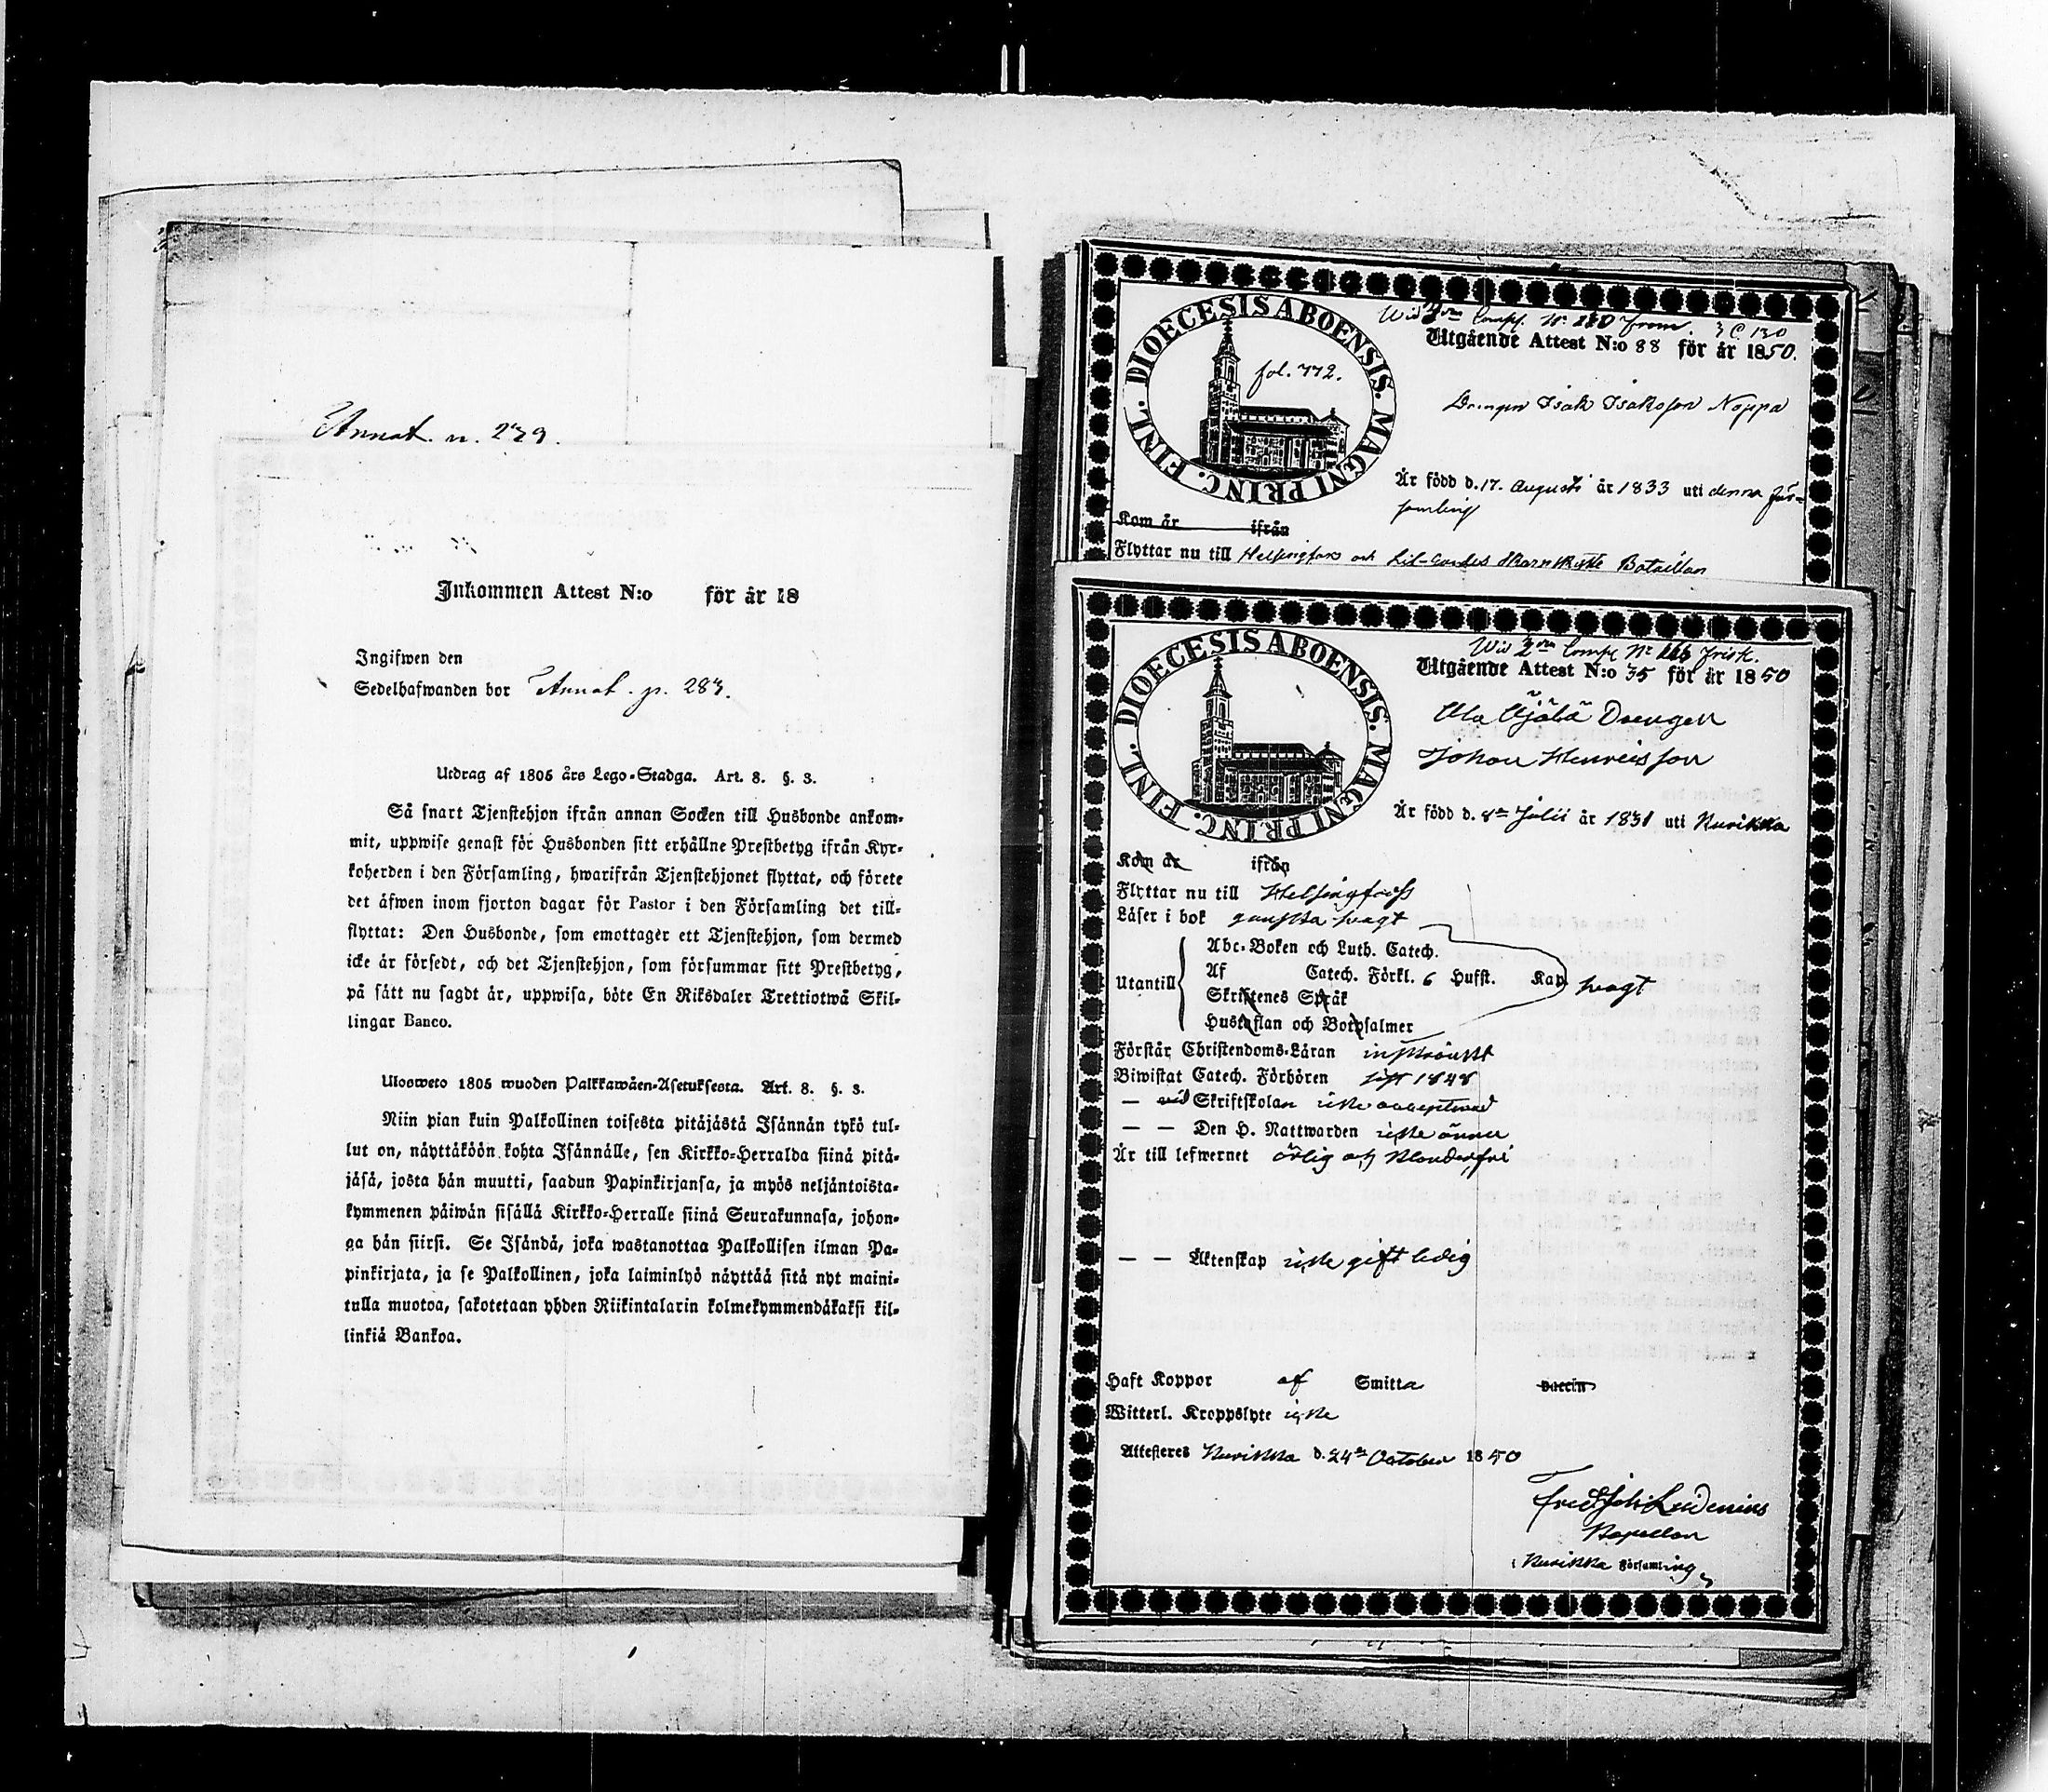 Annot. n. 279.
Inkommen Attest N:o för år 18
Ingifwen den
Sedelhafwanden bor Annot. p. 283.
Utdrag af 1805 års Lego-Stadga. Art. 8. §. 3.
Så snart Tjenstehjon ifrån annan Socken till Husbonde ankom-
mit, uppwise genast för Husbonden sitt erhållne Prestbetyg ifrån Kyr-
koherden i den Församling, hwarifrån Tjenstehjonet flyttat, och förete
det äfwen inom fjorton dagar för Pastor i den Församling det till-
flyttat: Den Husbonde, som emottager ett Tjenstehjon, som dermed
icke är försedt, och det Tjenstehjon, som försummar sitt Prestbetyg,
på sätt nu sagdt är, uppwisa, böte En Riksdaler Trettiotwå Skil-
lingar Banco.
Ulosweto 1805 wuoden Palkkawäen-Asetuksesta. Art. 8. §. 3.
Niin pian kuin Palkollinen toisesta pitäjästä Isännän tykö tul-
lut on, näyttäköön kohta Isännälle, sen Kirkko-Herralda siinä pitä-
jäsä, josta hän muutti, saadun Papinkirjansa, ja myös neljäntoista-
kymmenen päiwän sisällä Kirkko-Herralle siinä Seurakunnasa, johon-
ga hän siirsi. Se Isändä, joka wastanottaa Palkollisen ilman Pa-
pinkirjata, ja se Palkollinen, joka laiminlyö näyttää sitä nyt maini-
tulla muotoa, sakotetaan yhden Riikintalarin kolmekymmendäkaksi kil-
linkiä Bankoa.
DIOECESIS ABOENSIS. MAGNI PRINC. FINL.
fol. 772.
Wid 3ne Comp. No 130 from. 3 C 130
Utgående Attest N:o 88 för år 1850.
Drengen Isak Isaksson Noppa
Är född d. 17. Augusti år 1833 uti denna För-
samling
Kom år ifrån
Flyttar nu till Helsingfors och Lif-Gardes Skarpskytte Bataillon
DIOECESIS ABOENSIS. MAGNI PRINC. FINL.
Wid 2dra Comp. No 166 frisk.
Utgående Attest N:o 35 för år 1850
Ala Äjälä Drengen
Johan Henricsson
Är född d. 8de Julii år 1831 uti Kurikka
Kom år ifrån
Flyttar nu till Helsingfors
Läser i bok ganska swagt
Utantill
Abc-Boken och Luth. Catech.
Af Catech. Förkl. 6 Hufst. Kap. swagt
Skriftenes Språk
Hustaflan och Botpsalmer
Förstår Christendoms-Läran inskränkt
Biwistat Catech. Förhören sist 1848
— vid Skriftskolan icke accepterad
— — Den H. Nattwarden icke ännu
Är till lefwernet ärlig och klanderfri
— — Äktenskap icke gift ledig
Haft Koppor af Smitta Vaccin
Witterl. Kroppslyte icke
Attesteres Kurikka d. 24de October 1850
Fred. Joh. Ludenius
Kapellan
i Kurikka Församling